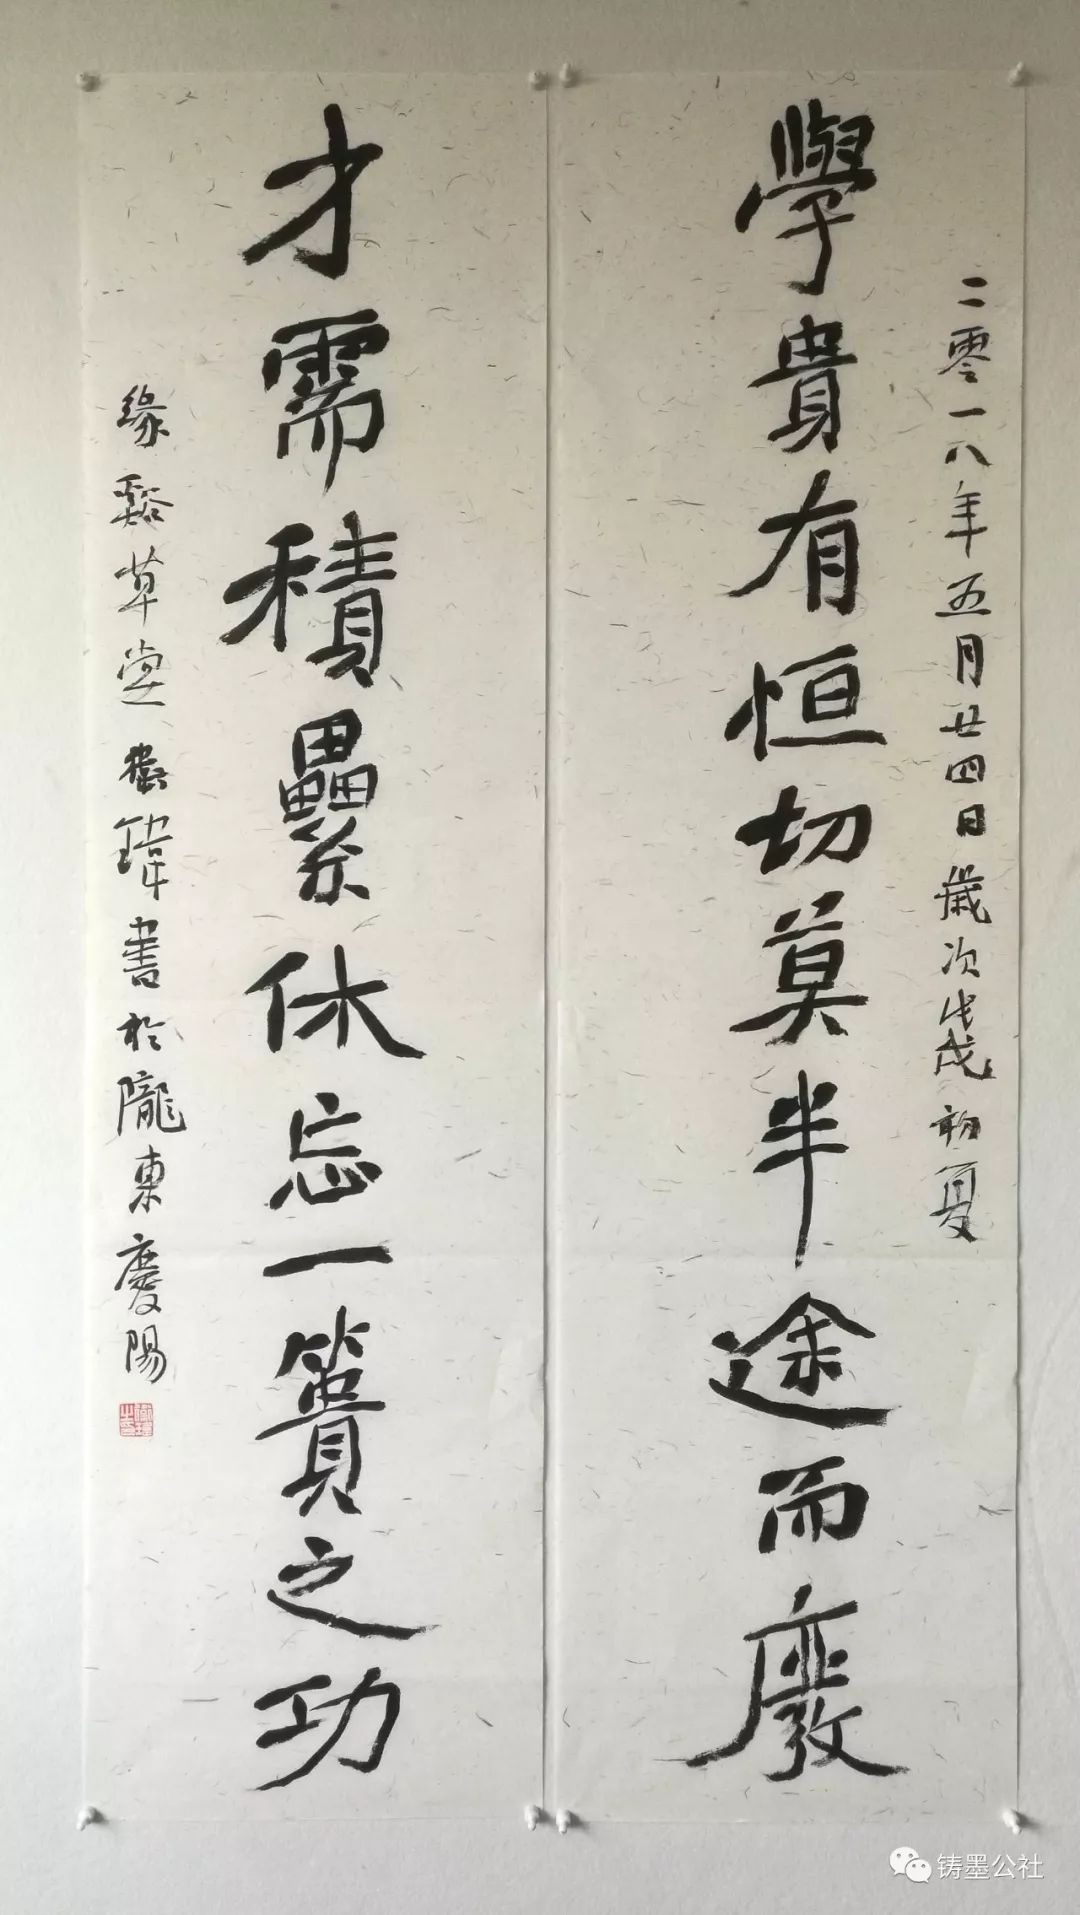 二零一八年五月廿四日歲次戊戌初夏
學貴有恒切莫半途而廢
才需積纍休忘一簣之功
緣谿草堂 瑋書於隴東慶陽
铸墨公社